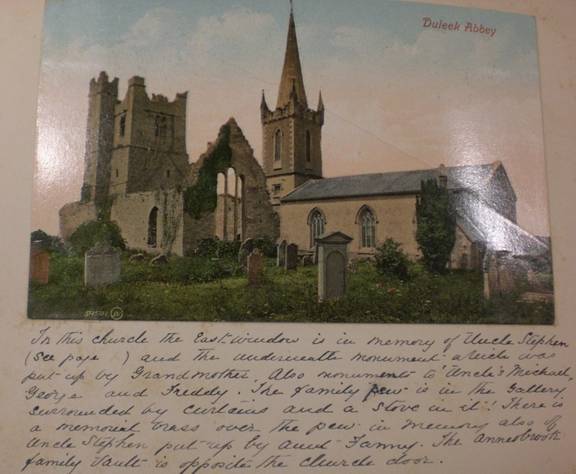 Duleek Abbey
In this church the East window is in memory of Uncle Stephen
(see page ) and the underneath monument which was
put up by Grandmother. Also monuments to "Uncle's Michael,
George and Freddy. The family pew is in the Gallery
surrounded by curtains and a stove in it! There is
a memorial brass over the pew in memory also of
Uncle Stephen put up by Aunt Fanny. The Annesbrook
family vault is opposite the church door.